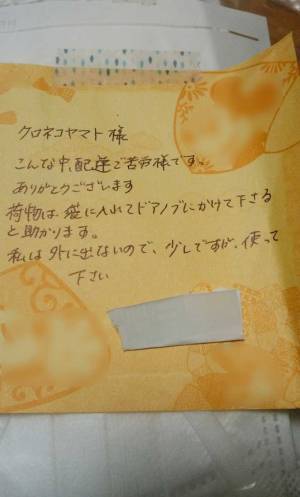 クロネコヤマト様
こんな中、配達ご苦労様です。
ありがとうございます
荷物は袋に入れてドアノブにかけて下さる
と助かります。
私は外に出ないので、少しですが、使って
下さい